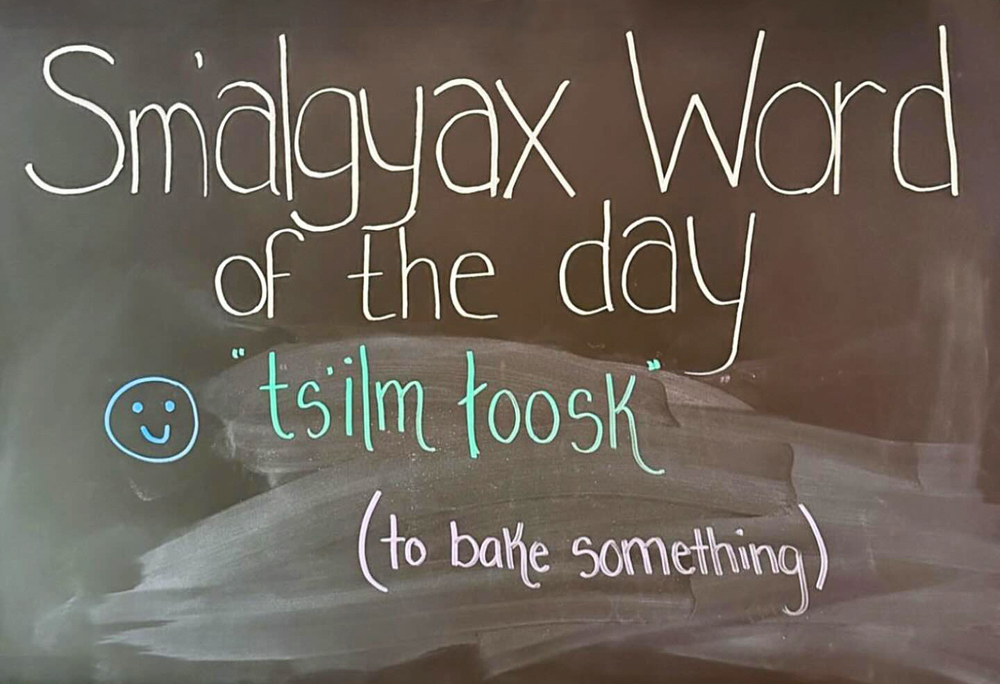 Sm'algyax Word
of the day
"ts'ilm łoosk"
(to bake something)